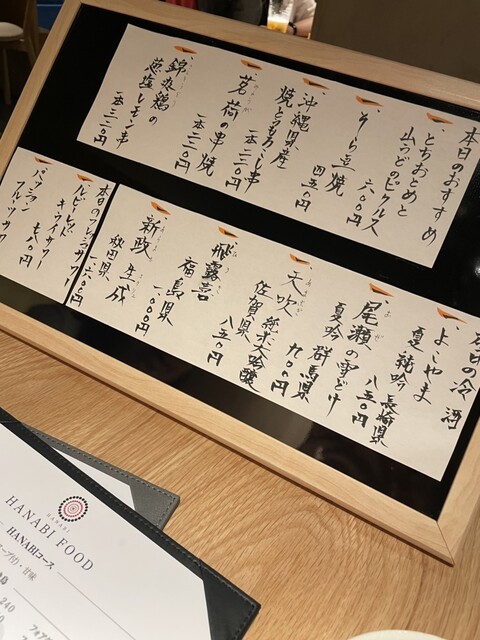 本日のおすすめ
とちおとめと
山うどのピクルス
六〇〇円
そら豆焼
四五〇円
沖縄県産
焼とうもろこし串
一本三三〇円
茗荷の串焼
一本三三〇円
錦爽鶏の
葱塩レモン串
一本三三〇円
本日の冷酒
よこやま
夏純吟 長崎県
八五〇円
尾瀬の雪どけ
夏吟 群馬県
九〇〇円
天吹 純米大吟醸
佐賀県 八五〇円
飛露喜
福島県
新政 生成
秋田県 一、〇〇〇円
本日のフレッシュサワー
ルビーレッド
キウイサワー
パッション
フルーツサワー
HANABI
HANABI FOOD
HANABIコース
・甘味
240